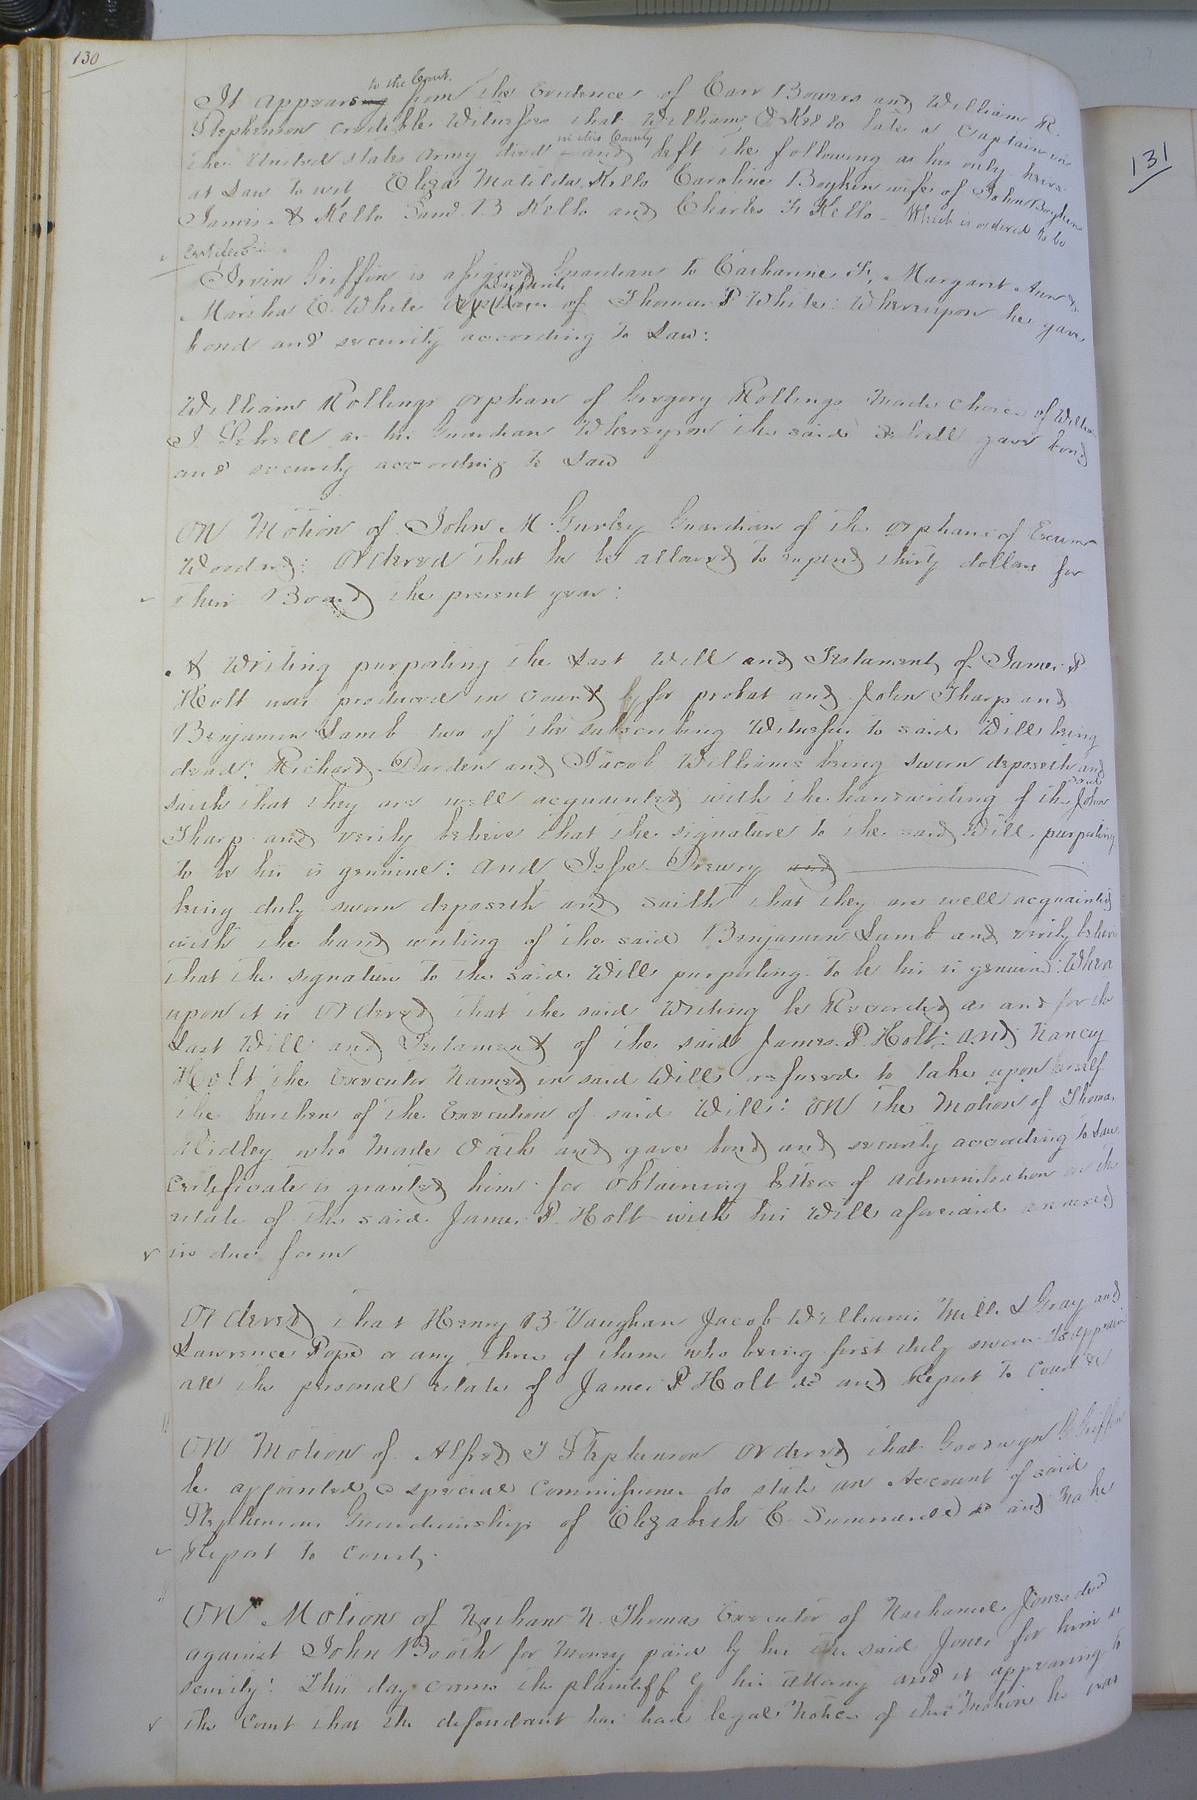 130
to the Court.
It appears from the Evidence of Carr Bowers and William R.
Stephenson credible Witnesses that William O Kello late a Captain in
in this County
the United States Army died and left the following as his only heirs
at Law to wit Eliza Matilda Kello Caroline Boykin wife of John Boykin
James A Kello Saml B Kello and Charles F Kello - Which is ordered to be
Certified:
Irvin Griffin is assigned Guardian to Catharine F, Margaret Ann &
infants
Marsha E. White orphans of Thomas P White: Whereupon he gave
bond and security according to Law:
William Rollings orphan of Gregory Rollings made choice of William
J Sebrell as his Guardian Whereupon the said Sebrell gave bond
and security according to Law
ON Motion of John M. Gurley Guardian of the orphans of Exum
Woodard: Ordered that he be allowed to expend thirty dollars for
their Board the present year:
A Writing purporting the Last Will and Testament of James P
Holt was produced in Court for probat and John Tharp and
Benjamin Lamb two of the subscribing Witnesses to said Will being
dead: Richard Darden and Jacob Williams being sworn deposeth and
said
saith that they are well acquainted with the handwriting of the John
Tharp and verily believe that the signature to the said Will purporting
to be his is genuine: and Jesse Drewry and
being duly sworn deposeth and saith that they are well acquainted
with the hand writing of the said Benjamin Lamb and verily believe
that the signature to the said Will purporting to be his is genuine: Where
upon it is Ordered that the said Writing be Recorded as and for the
Last Will and Testament of the said James P. Holt: and Nancy
Holt the Executor Named in said Will refused to take upon herself
the burthen of the Execution of said Will: ON the Motion of Thomas
Ridley who made Oath and gave bond and security according to Law
Certificate is granted him for Obtaining letters of administration on the
estate of the said James P. Holt with his Will aforesaid annexed
in due form
Ordered that Henry B. Vaughan Jacob Williams Mills L Gray and
Lawrence Pope or any three of them who being first duly sworn do appraise
all the personal estate of James P Holt decd and Report to Court &c
ON Motion of Alfred J Stephenson Ordered that Goodwyn G Griffin
be appointed a special Commissioner to state an Account of said
Stephenson Guardianship of Elizabeth C. Summerell and make
Report to Court.
ON Motion of Nathan N. Thomas Executor of Nathaniel Jones decd
against John Booth for money paid by him the said Jones for him as
security: This day came the plaintiff by his attorney and it appearing to
the Court that the defendant has had legal Notice of this Motion he was
131